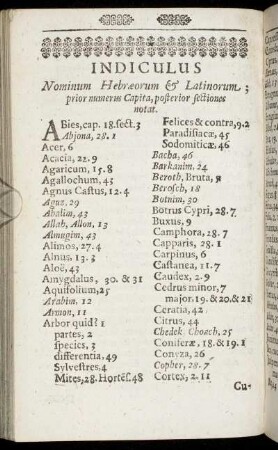 INDICULUS
Nominum Hebræorum & Latinorum,
prior numerus Capita, posterior sectiones
notat.
ABies, cap. 18. sect. 3
Abjona, 28. 1
Acer, 6
Acacia, 21. 9
Agaricum, 15. 8
Agallochum, 43
Agnus Castus, 12. 4
Aguz. 29
Ahalim, 43
Allah, Allon, 13
Almugim, 43
Alimos, 27. 4
Alnus. 13. 3
Aloë, 43
Amygdalus, 30. & 31
Aquifolium, 25
Arabim. 12
Armon, 11
Arbor quid? 1
partes, 2
species, 3
differentia, 49
Sylvestres, 4
Mites, 28. Hortēs. 48
Felices & contra, 9. 2
Paradisiacæ, 45
Sodomiticæ, 46
Bacha, 46
Barkanim. 24
Beroth, Bruta, 9
Berosch, 18
Botnim, 30
Botrus Cypri, 28. 7
Buxus, 9
Camphora, 28. 7
Capparis, 28. 1
Carpinus, 6
Castanea, 11. 7
Caudex, 2. 9
Cedrus minor, 7
major. 19. & 20. & 21
Ceratia, 42
Citrus, 44
Chedek, Choach, 25
Coniferæ, 18. & 19. 1
Conyza, 26
Copher, 28. 7
Cortex, 2. 11
Cu-